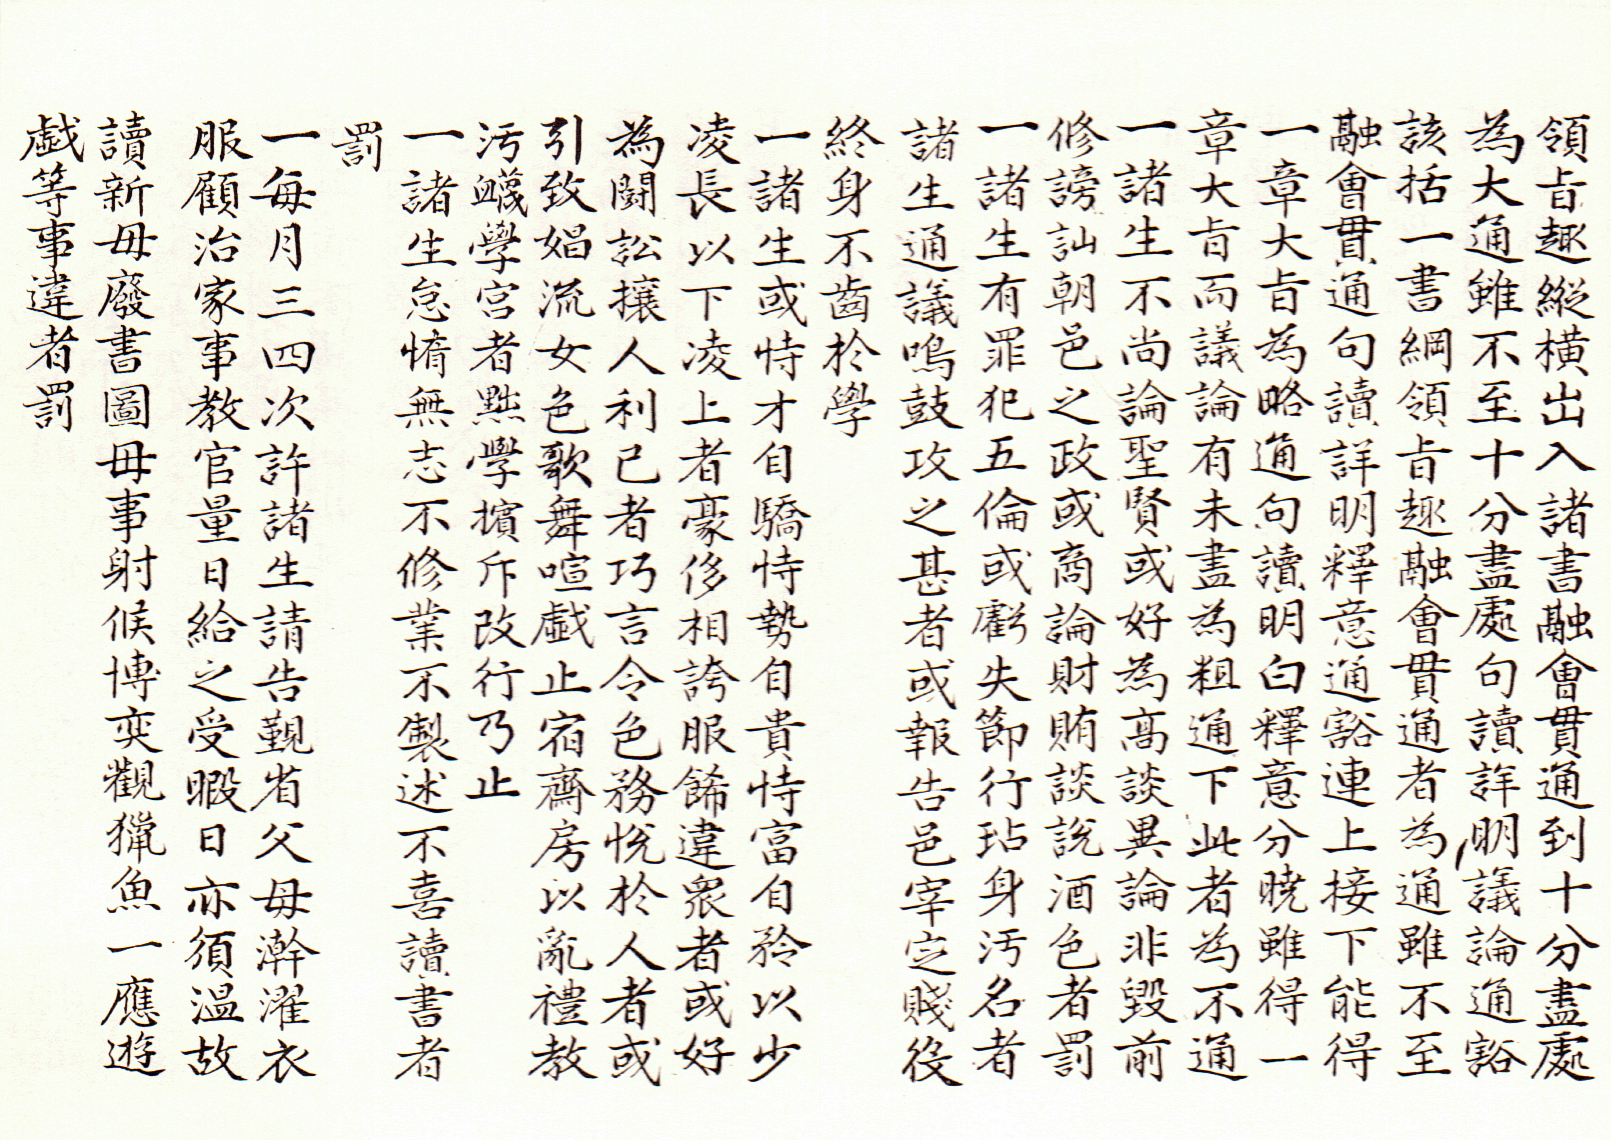 領旨趣縱橫出入諸書融會貫通到十分盡處
為大通雖不至十分盡處句讀詳明議論通豁
該括一書綱領旨趣融會貫通者為通雖不至
融會貫通句讀詳明釋意通豁連上接下能得
一章大旨為略通句讀明白釋意分曉雖得一
章大旨而議論有未盡為粗通下此者為不通
一諸生不尚論聖賢或好為高談異論非毀前
修謗訕朝邑之政或商論財賄談說酒色者罰
一諸生有罪犯五倫或虧失節行玷身汚名者
諸生通議鳴鼓攻之甚者或報告邑宰定賤役
終身不齒於學
一諸生或恃才自驕恃勢自貴恃富自矜以少
凌長以下凌上者豪侈相誇服餙違衆者或好
為鬪訟攘人利己者巧言令色務悅於人者或
引致娼流女色歌舞喧戱止宿齋房以亂禮教
汚衊學宮者黜學擯斥改行乃止
一諸生怠惰無志不修業不製述不喜讀書者
罰
一每月三四次許諸生請告覲省父母澣濯衣
服顧治家事教官量日給之受暇日亦須溫故
讀新毋廢書圖毋事射候博奕觀獵魚一應遊
戱等事違者罰